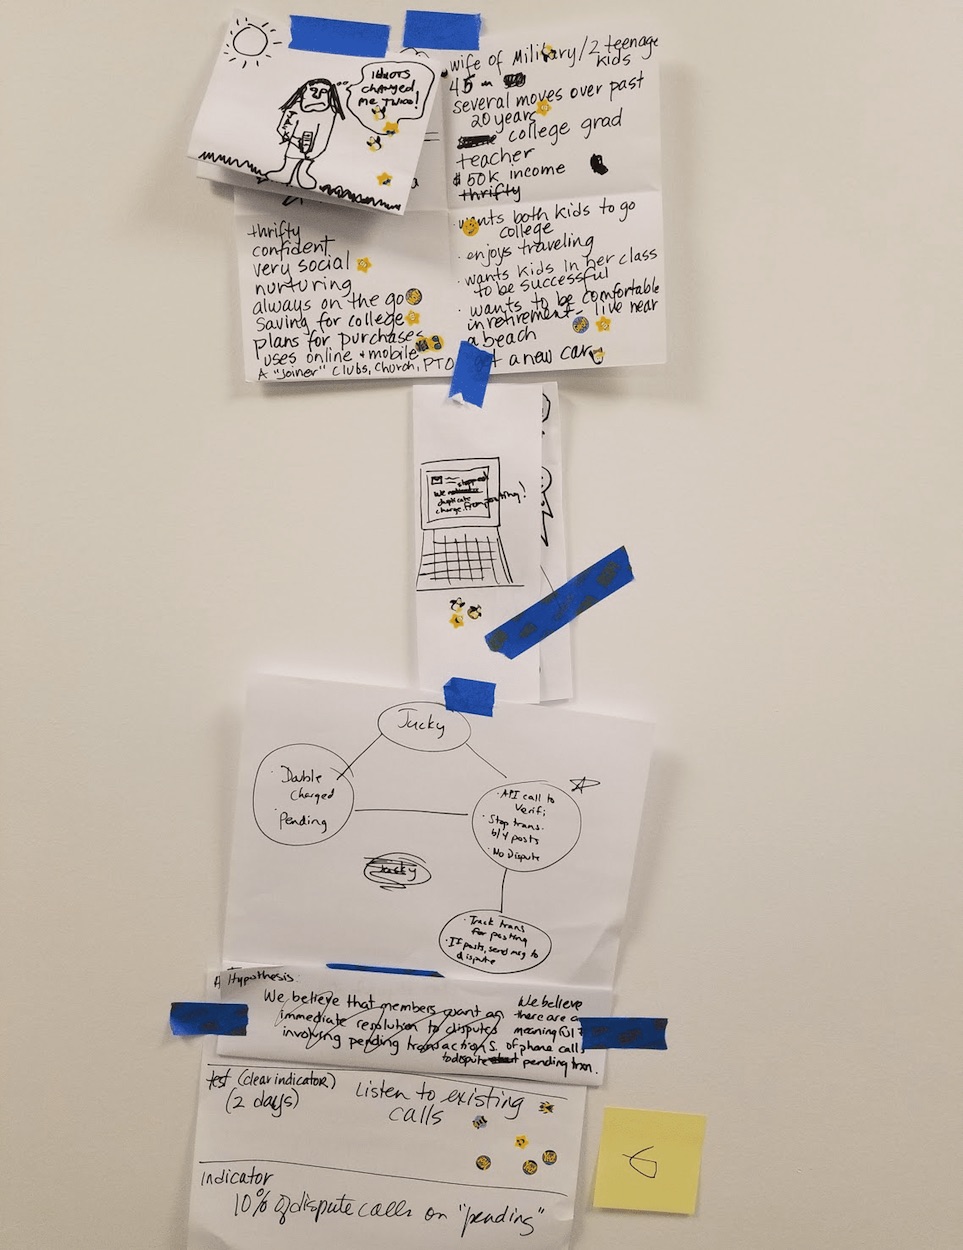 IDIOTS
CHARGED
ME TWICE!
wife of Military/2 teenage
kids
45
several moves over past
20 years
college grad
teacher
$50k income
thrifty
· wants both kids to go
college
· enjoys traveling
· wants kids in her class
to be successful
· wants to be comfortable
in retirement - live near
a beach
get a new car
thrifty
confident
very social
nurturing
always on the go
saving for college
plans for purchases
uses online + mobile
A "Joiner" Clubs, Church, PTO
stopped
We
duplicate
charge. From posting!
Jacky
· Double
charged
· Pending
· API call to
Verifi
· Stop trans.
b/4 posts
· No Dispute
Jacky
· Track trans
for posting
· If posts, send msg to
dispute
A Hypothesis:
We believe that members want an
immediate resolution to disputes
involving pending transactions.
We believe
there are a
meaningful #
of phone calls
to dispute pending tran.
test (clear indicator)
(2 days)
Listen to existing
calls
indicator
10% of dispute calls on "pending"